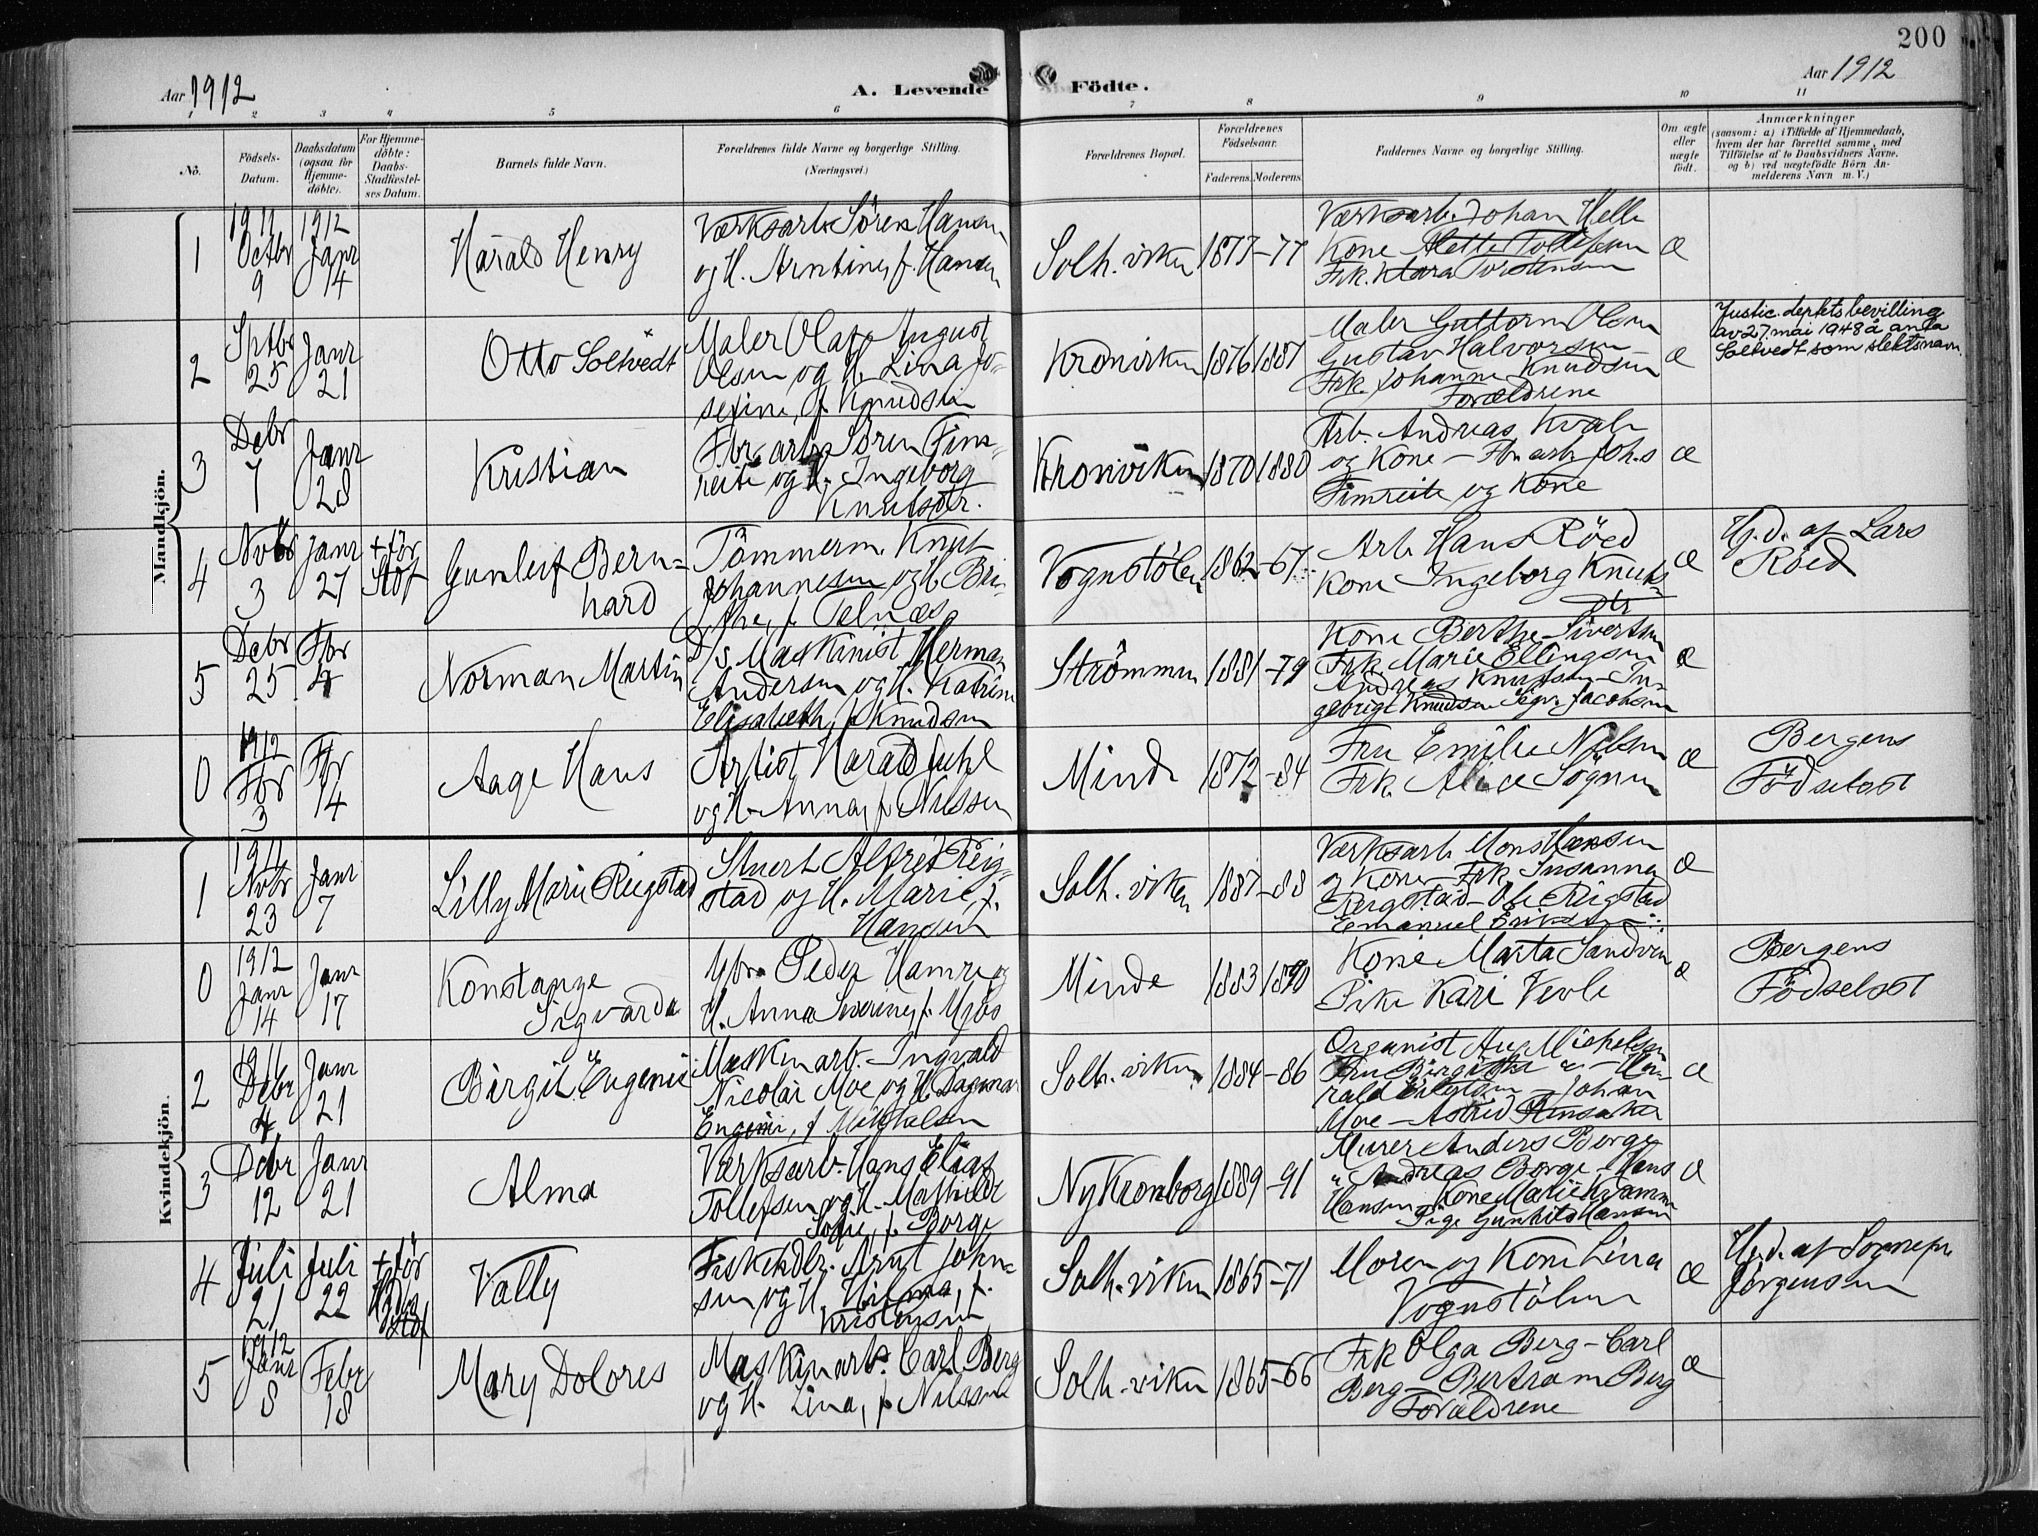 200
Aar 1912
A. Levende Födte.
Aar 1912
1 2 3 4 5 6 7 8 9 10 11
No.
Födsels-Datum.
Daabsdatum (ogsaa for Hjemme-döbte).
For Hjemme-döbte: Daabs-Stadfæstel-ses Datum.
Barnets fulde Navn.
Forældrenes fulde Navne og borgerlige Stilling.
(Næringsvei.)
Forældrenes Bopæl.
Forældrenes Födselsaar.
Faderens. Moderens.
Faddernes Navne og borgerlige Stilling.
Om ægte eller uægte födt.
Anmærkninger
(saasom: a) i Tilfælde af Hjemmedaab, hvem der har forrettet samme, med Tilföielse af to Daabsvidners Navne. og b) ved uægtefödte Börn An-melderens Navn m. V.)
Mandkjön.
1
1911 Octbr 9
1912 Janr 14
Harald Henry
Værksarb. Sören Hansen
og H. Arntine, f. Hansen
Solh. viken
1877-77
Værksarb. Johan Helle
Kone Mette Tollefsen
Frk. Klara Torstensen
æ
2
Sptbr 25
Janr 21
Otto Soltvedt
Maler Olaf August
Olsen og H. Lina Jo-
sefine, f. Knudsen
Kronviken
1876 1887
Maler Guttorm Olsen
Gustav Halvorsen
Frk. Johanne Knudsen
Forældrene
æ
Justic. deptets bevilling
av 27 mai 1948 å anta
Soltvedt som slektsnavn.
3
Debr 7
Janr 28
Kristian
Fbr. arb. Sören Fim-
reite og H. Ingeborg
Knutsdr.
Kronviken
1870 1880
Arb. Andreas Kvale
og Kone - Fbr. arb. Johs
Fimreite og Kone
æ
4
Nvbr 3
Janr 27
+ för Stdf
Gunleif Bern-
hard
Tömmerm. Knut
Johannesen og H. Bri-
the, f. Telnæs
Vognstölen
1862-67
Arb. Hans Röed
Kone Ingeborg Knuts-
dtr
æ
Hj.d. af Lars
Röed
5
Debr 25
Fbr 4
Norman Martin
D/s Maskinist Herman
Andersen og H. Katrine
Elisabeth, f. Knudsen
Strömmen
1881-79
Kone Berthe Sivertsen
Frk. Marie Ellingsen
Andreas Knutsen - In-
gebrigt Knudsen Sigv. Jacobsen
æ
0
1912 Fbr 3
Fbr 14
Aage Hans
Artist Harald Juhl
og H. Anna, f. Nilssen
Minde
1872-84
Fru Emilie Nilsen
Frk. Alice Sögnen
æ
Bergens
Födselsst
Kvindekjön.
1
1911 Nvbr 23
Janr 7
Lilly Marie Reigstad
Stuert Alfred Reig-
stad og H. Marie, f.
Hansen
Solh. viken
1887-88
Værksarb. Mons Hansen
og Kone - Frk. Susanna
Reigstad - Ole Reigstad
Emanuel Eriksen
æ
0
1912 Janr 14
Janr 17
Konstanze
Sigvarda
Peder Hamre og
H. Anna Severine, f. Mjös
Minde
1883 1890
Kone Marta Sandven
Pike Kari Vevle
æ
Bergens
Födselsst
2
1911 Debr 4
Janr 21
Birgit Eugenie
Maskinarb. Ingvald
Nicolai Moe og H. Dagmar
Eugenie, f. Mikkalsen
Solh. viken
1884-86
Organist Aug Mickelsen
Fru Birgitha - Ha-
rald - Johan
Moe - Astrid
æ
3
Debr 12
Janr 21
Alma
Værksarb. Hans Elias
Tollefsen og H. Mathilde
Sofie, f. Borge
Ny Kronborg
1889-91
Murer Anders Borge
" Andreas Borge - Hans
Hansen Kone Marie Kvamme
Pige Gunhild Hansen
æ
4
Juli 21
Juli 22
+ för Hjds Stdf
Vally
Fiskehdlr. Arnt John-
sen, og H. Hilma, f.
Kristensen
Solh. viken
1865-71
Moren og Kone Lina
Vognstölen
æ
Hj.d. af Sognepr.
Jörgensen
5
1912 Janr 8
Febr 18
Mary Dolores
Maskinarb. Carl Berg
og H. Lina, f. Nilssen
Solh. viken
1865-66
Frk Olga Berg - Carl
Berg - Bertram Berg
Forældrene
æ